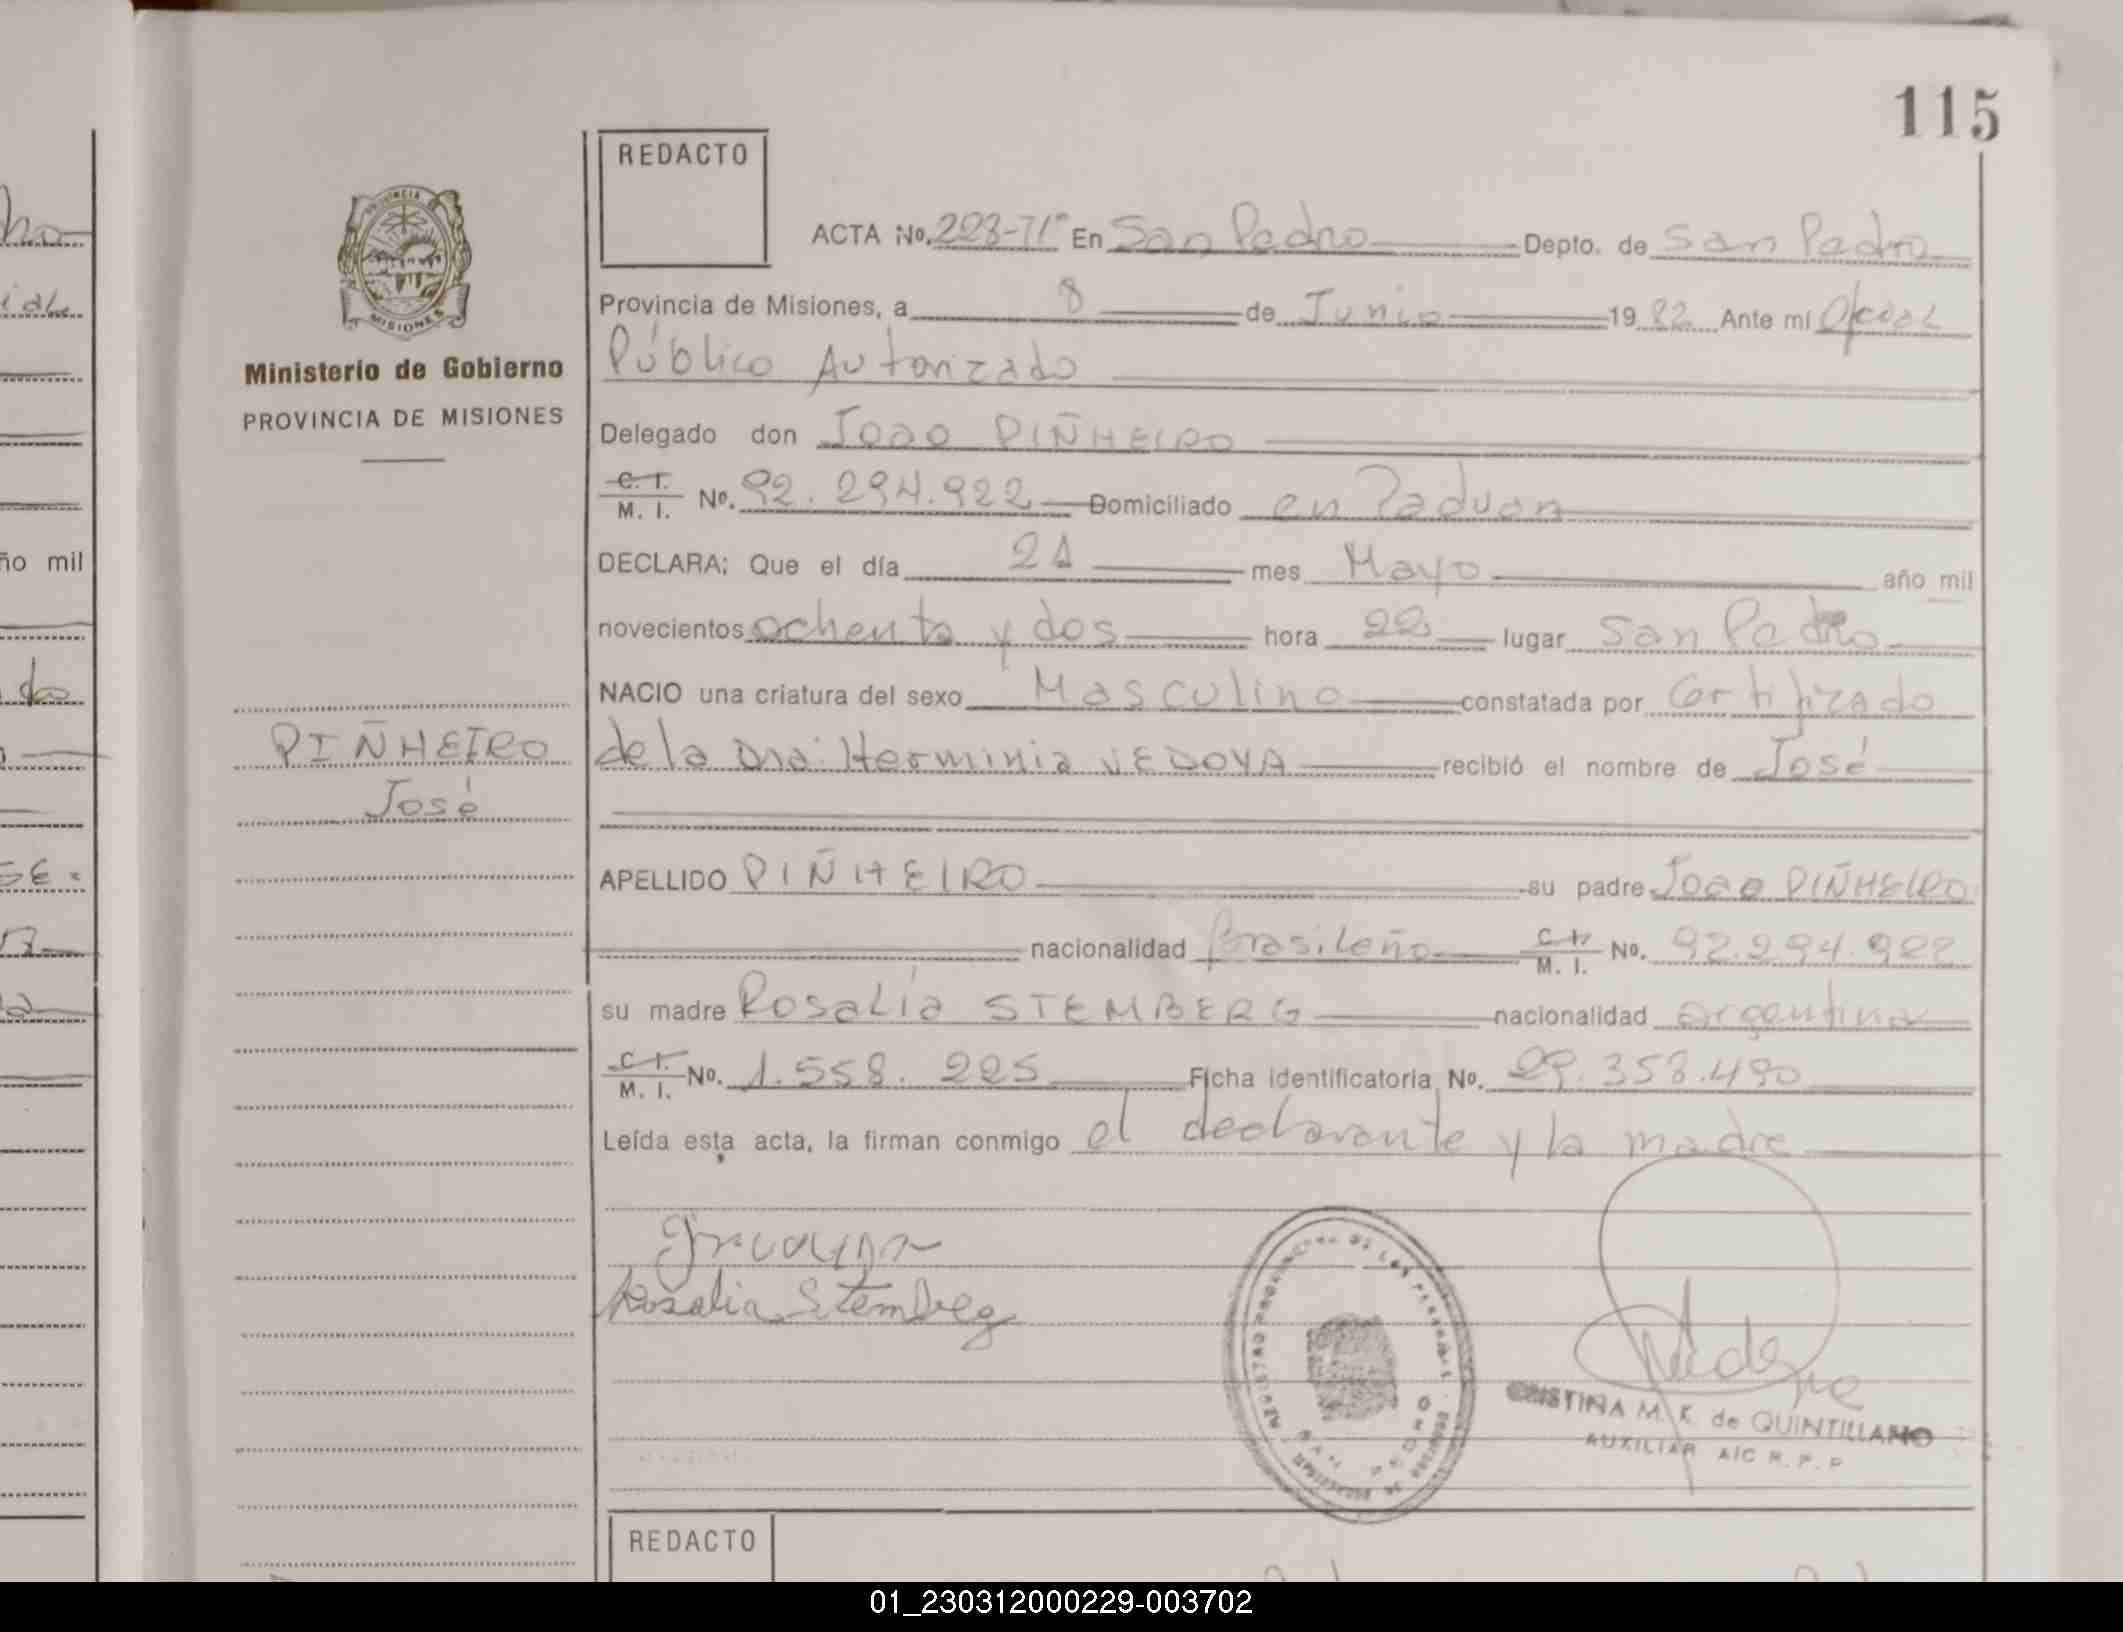 115
REDACTO
ACTA No. 228-71° En San Pedro Depto. de San Pedro
Provincia de Misiones, a 8 de Junio 1982 Ante mí Oficial
Público Autorizado
Delegado don Joao PIÑHEIRO
C. I. / M. I. No. 92.294.922 Domiciliado en
DECLARA: Que el día 21 mes Mayo año mil
novecientos ochenta y dos hora 22 lugar San Pedro
NACIO una criatura del sexo Masculino constatada por Certifizado
de la Dra. Herminia VEDOYA recibió el nombre de José
APELLIDO PIÑHEIRO su padre Joao PIÑHEIRO
nacionalidad Brasileño C. I. / M. I. No. 92.294.922
su madre Rosalía STEMBERG nacionalidad argentina
C. I. / M. I. No. 1.558.225 Ficha identificatoria No. 29.358.490
Leída esta acta, la firman conmigo el declarante y la madre
Rosalia Stemberg
CRISTINA M. K. de QUINTILLANO
AUXILIAR A/C R. P. P
SAN PEDRO
REDACTO
PROVINCIA DE
MISIONES
Ministerio de Gobierno
PROVINCIA DE MISIONES
PIÑHEIRO
José
ño mil
01_230312000229-003702